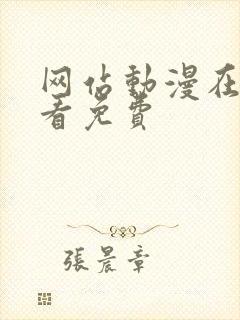 网佔動漫在
看免費
張晨章